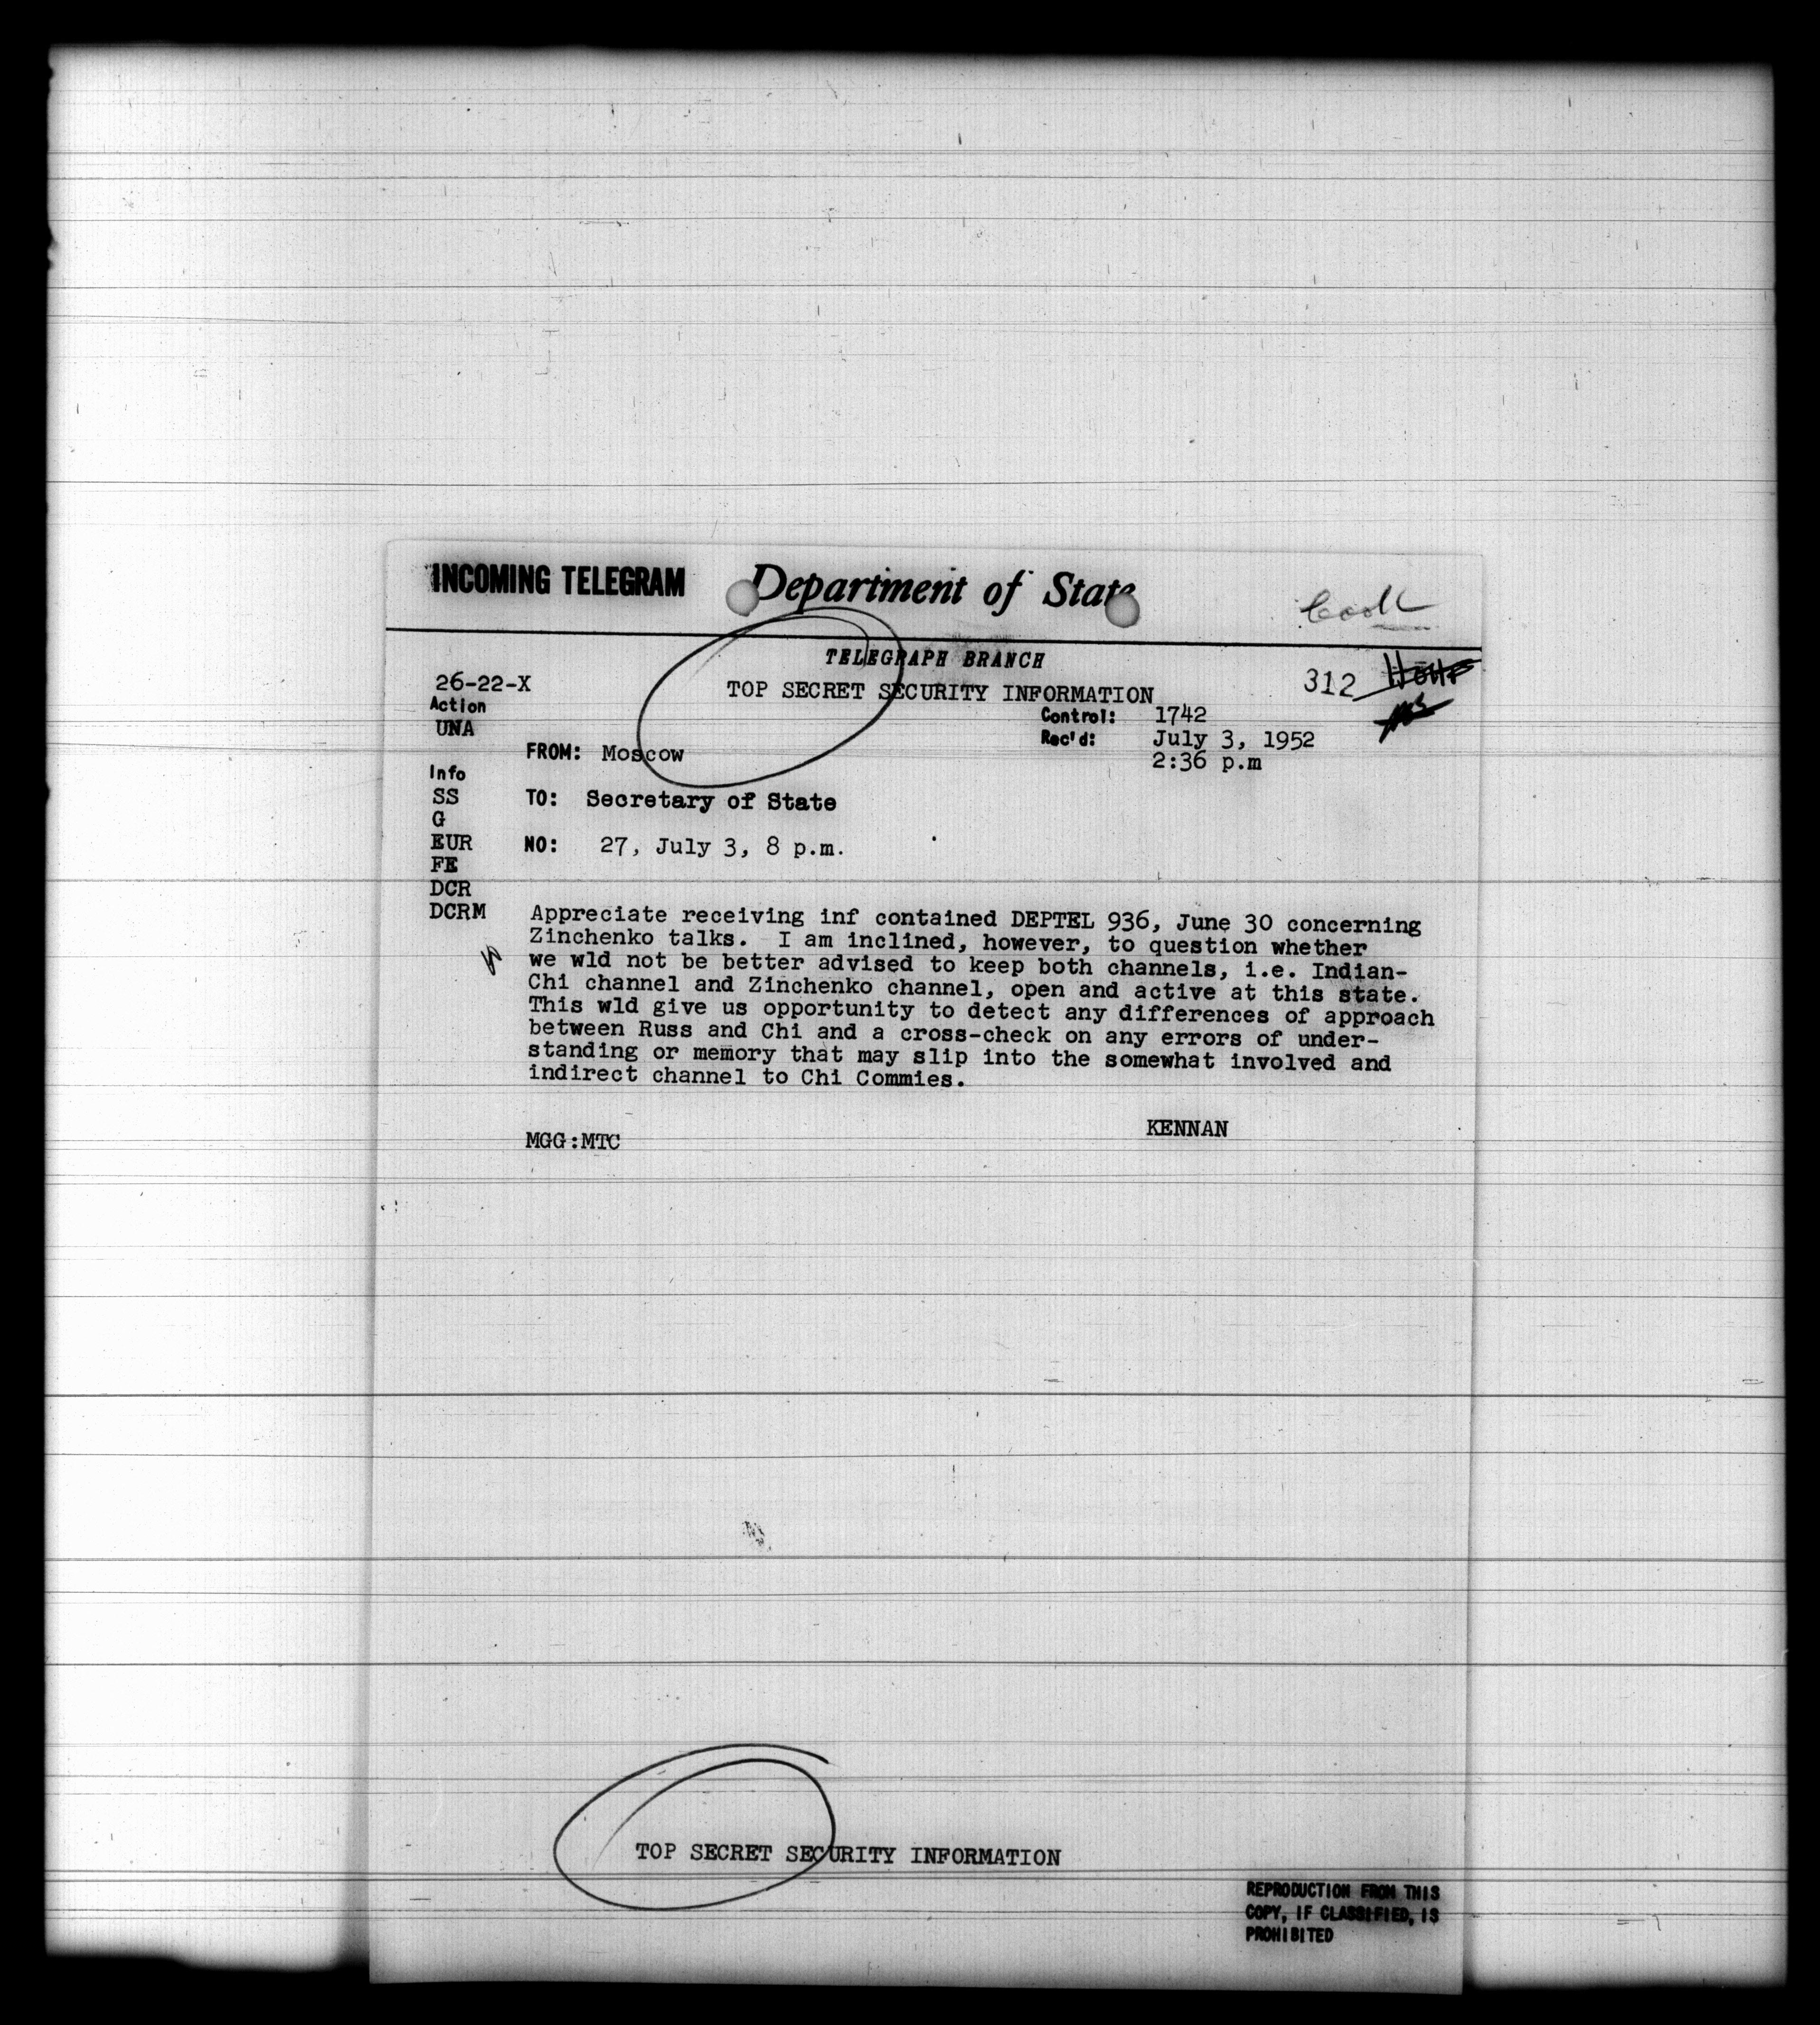 INCOMING TELEGRAM Department of State
TELEGRAPH BRANCH
26-22-X TOP SECRET SECURITY INFORMATION 312
Action Control: 1742
UNA Rec'd: July 3, 1952
FROM: Moscow 2:36 p.m
Info
SS TO: Secretary of State
G
EUR NO: 27, July 3, 8 p.m.
FE
DCR
DCRM Appreciate receiving inf contained DEPTEL 936, June 30 concerning
Zinchenko talks. I am inclined, however, to question whether
we wld not be better advised to keep both channels, i.e. Indian-
Chi channel and Zinchenko channel, open and active at this state.
This wld give us opportunity to detect any differences of approach
between Russ and Chi and a cross-check on any errors of under-
standing or memory that may slip into the somewhat involved and
indirect channel to Chi Commies.
KENNAN
MGG:MTC
TOP SECRET SECURITY INFORMATION
REPRODUCTION FROM THIS
COPY, IF CLASSIFIED, IS
PROHIBITED